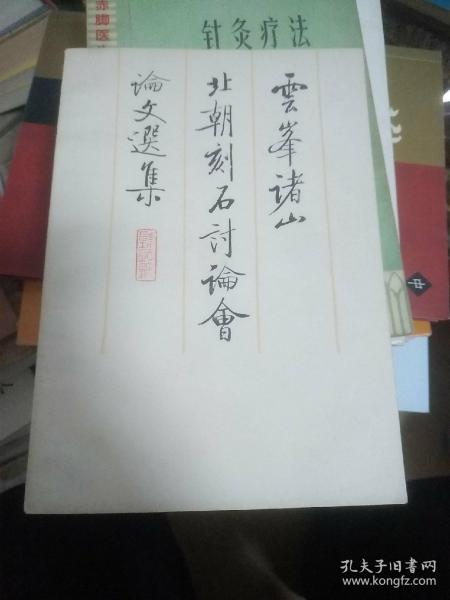 雲峯诸山
北朝刻石討論會
論文選集
赤脚医
针灸疗法
中
孔夫子旧书网
www.kongfz.com